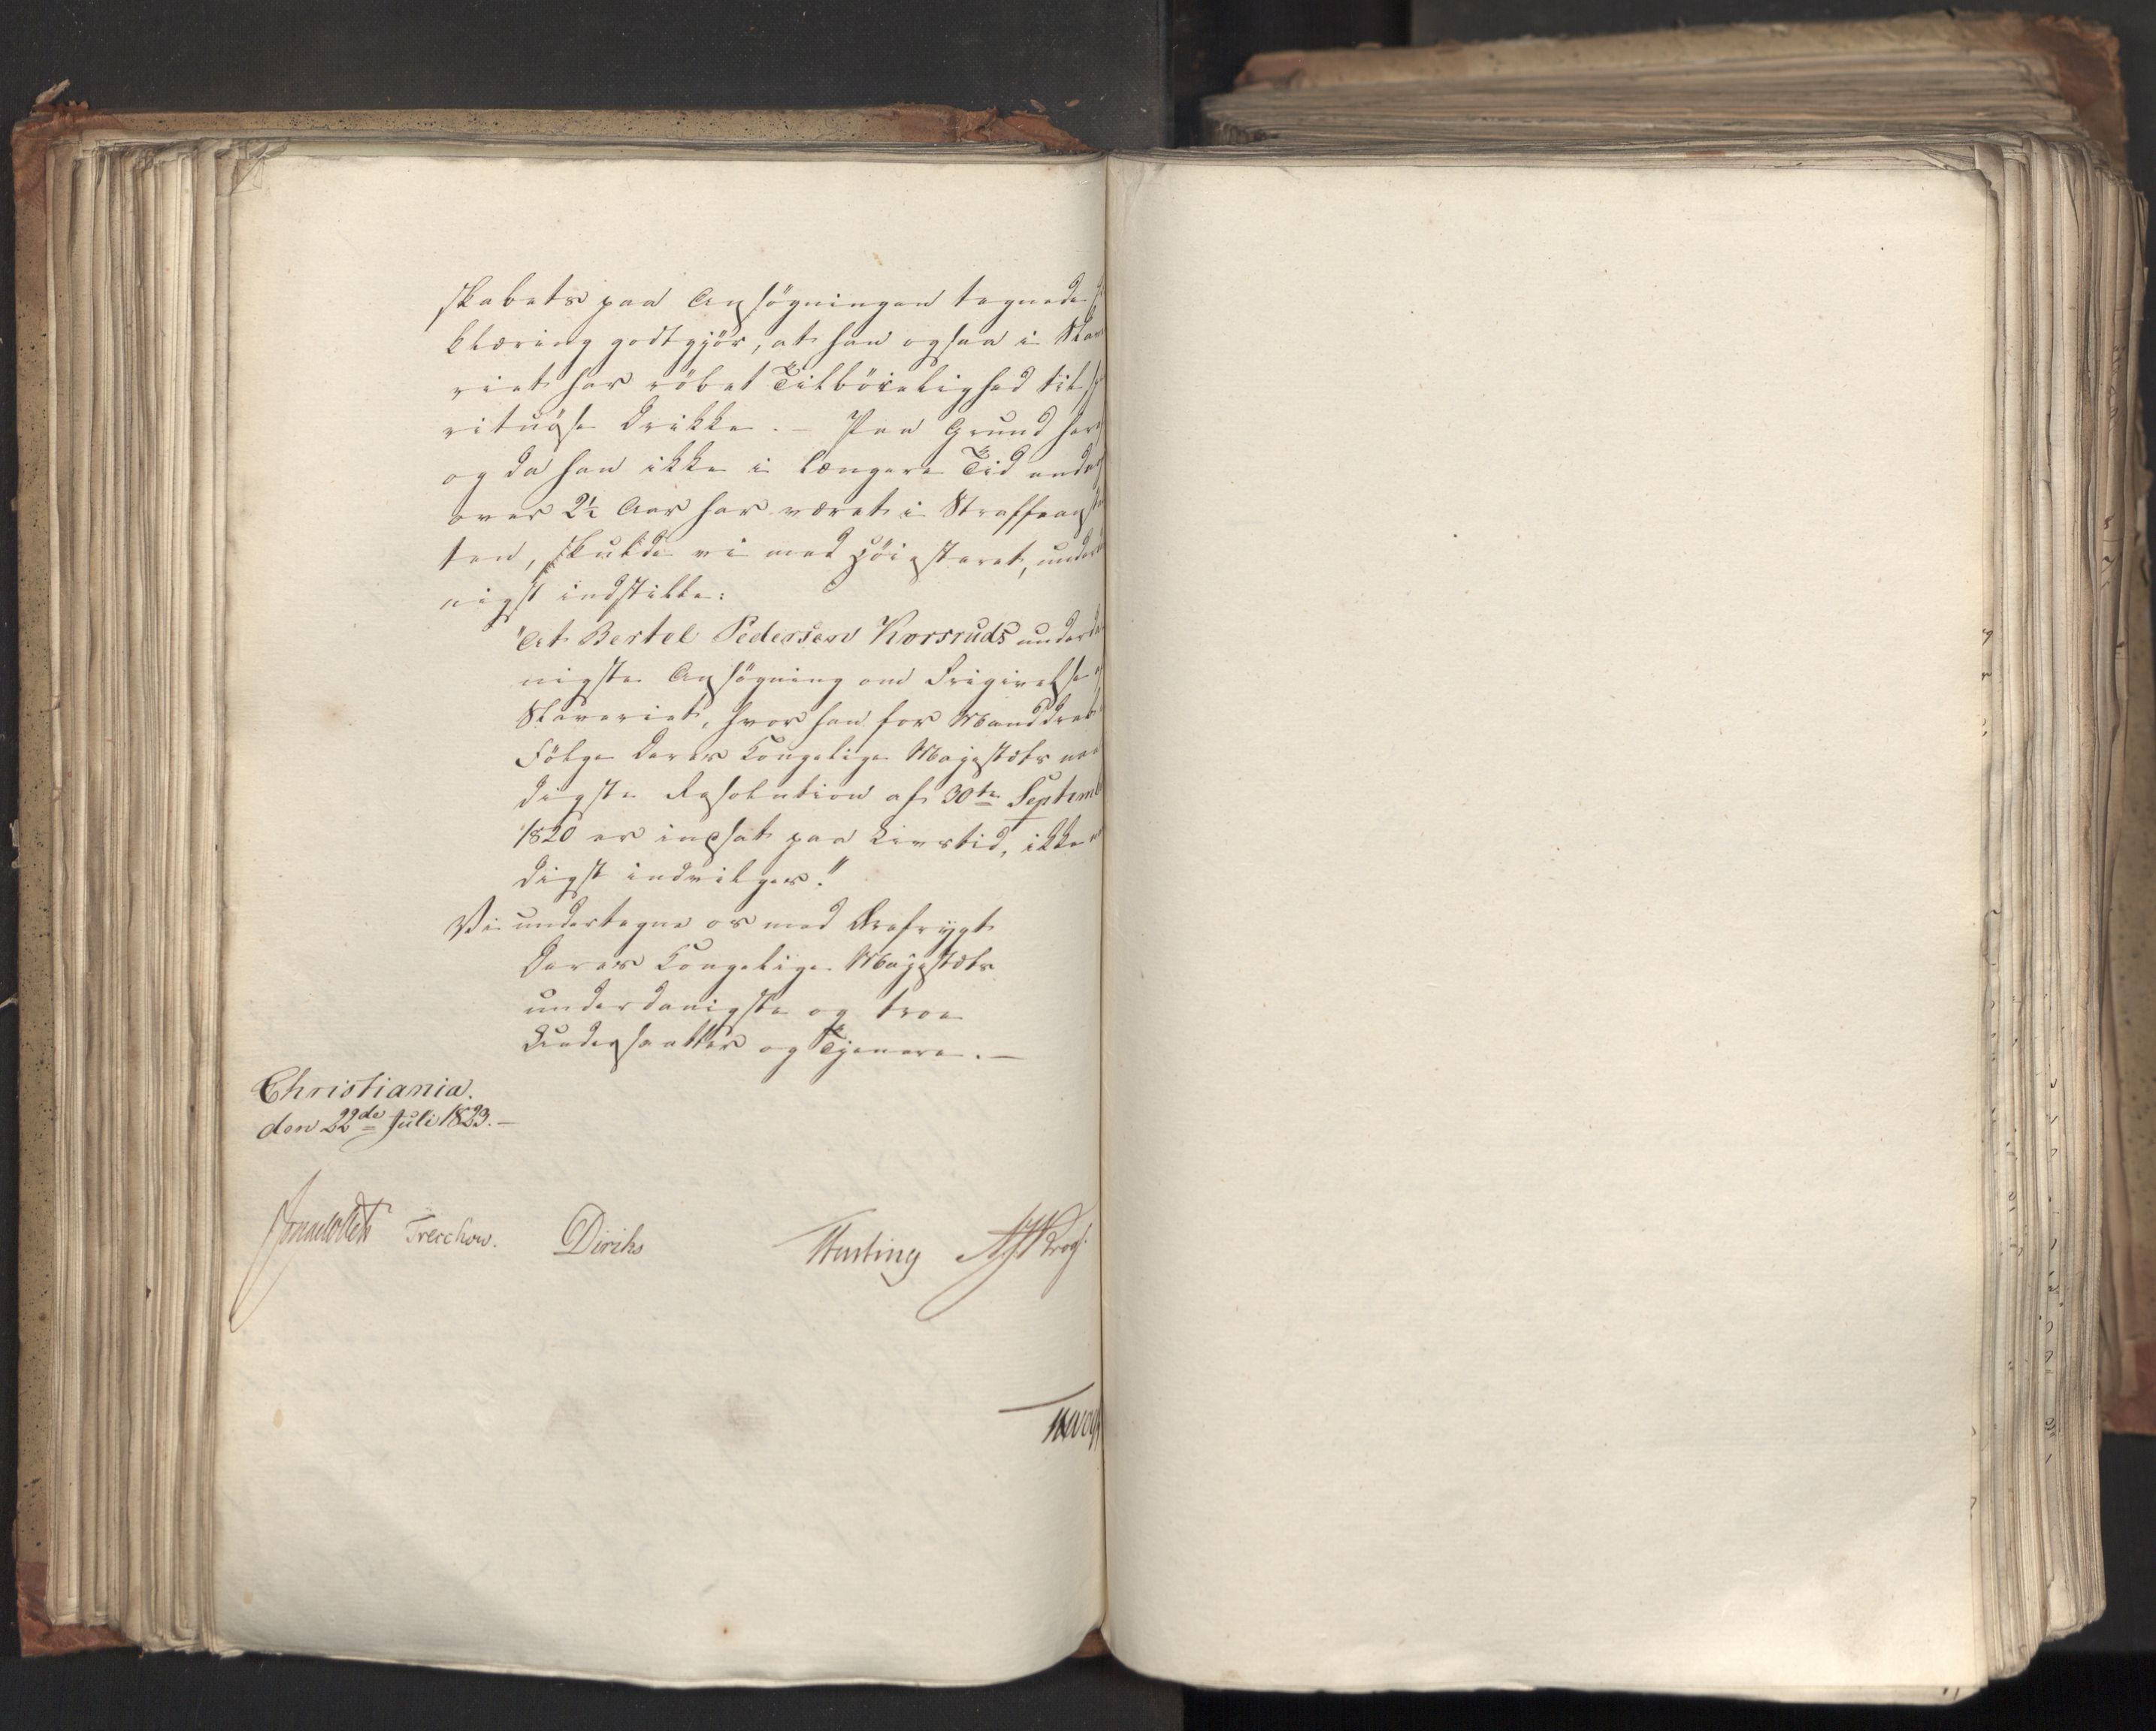 skabets paa Ansögningen tegnede
klæring godtgjör, at han ogsaa i Slave
riet har röbet Tilböielighed til sp
rituöse Drikke. – Paa Grund her
og da han ikke i længere Tid end
over 2½ Aar har været i Straffeanst
ten, skulde vi med Höiesteret, under
nigst indstille:
"At Bertel Pedersen Korsruds underda
nigste Ansögning om Frigivelse
Slaveriet, hvor han for Manddrab
Fölge Deres Kongelige Majestæts naa
digste Resolution af 30te Septemb
1820 er indsat paa Livstid, ikke
digst indvilges."
Vi undertegne os med Ærefrygt
Deres Kongelige Majestæts
underdanigste og troe
Undersaatter og Tjenere. –
Christiania.
den 22de Juli 1823. –
Sommerfeldt Treschow. Diriks Hasting Krog.